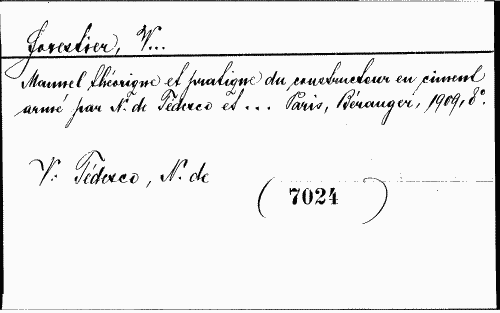 Forestier, V...
Manuel théorique et pratique du constructeur en ciment
armé par N. de Tédesco et ... Paris, Béranger, 1909, 8°.
V. Tédesco, N. de
(7024)